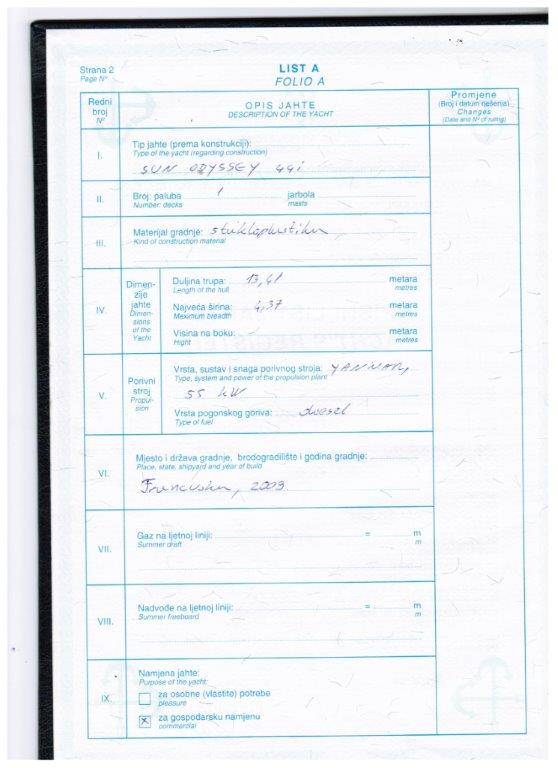 Strana 2
Page Nº
LIST A
FOLIO A
Redni
broj
Nº
OPIS JAHTE
DESCRIPTION OF THE YACHT
Promjene
(Broj i datum rješenja)
Changes
(Date and Nº of ruling)
I.
Tip jahte (prema konstrukciji):
Type of the yacht (regarding construction)
SUN ODYSSEY 44i
II.
Broj: paluba 1 jarbola
Number: decks masts
III.
Materijal gradnje: stakloplastika
Kind of construction material
IV.
Dimen-
zije
jahte
Dimen-
sions
of the
Yacht
Duljina trupa: 13,41 metara
Length of the hull metres
Najveća širina: 4,37 metara
Meximum breadth metres
Visina na boku: metara
Hight metres
V.
Porivni
stroj
Propul-
sion
Vrsta, sustav i snaga porivnog stroja: YANMAR,
Type, system and power of the propulsion plant
55 kW
Vrsta pogonskog goriva: diesel
Type of fuel
VI.
Mjesto i država gradnje, brodogradilište i godina gradnje:
Place, state, shipyard and year of build
Francuska, 2009.
VII.
Gaz na ljetnoj liniji: = m
Summer draft m
VIII.
Nadvođe na ljetnoj liniji: = m
Summer freeboard m
IX.
Namjena jahte:
Purpose of the yacht:
za osobne (vlastite) potrebe
pleasure
x za gospodarsku namjenu
commercial